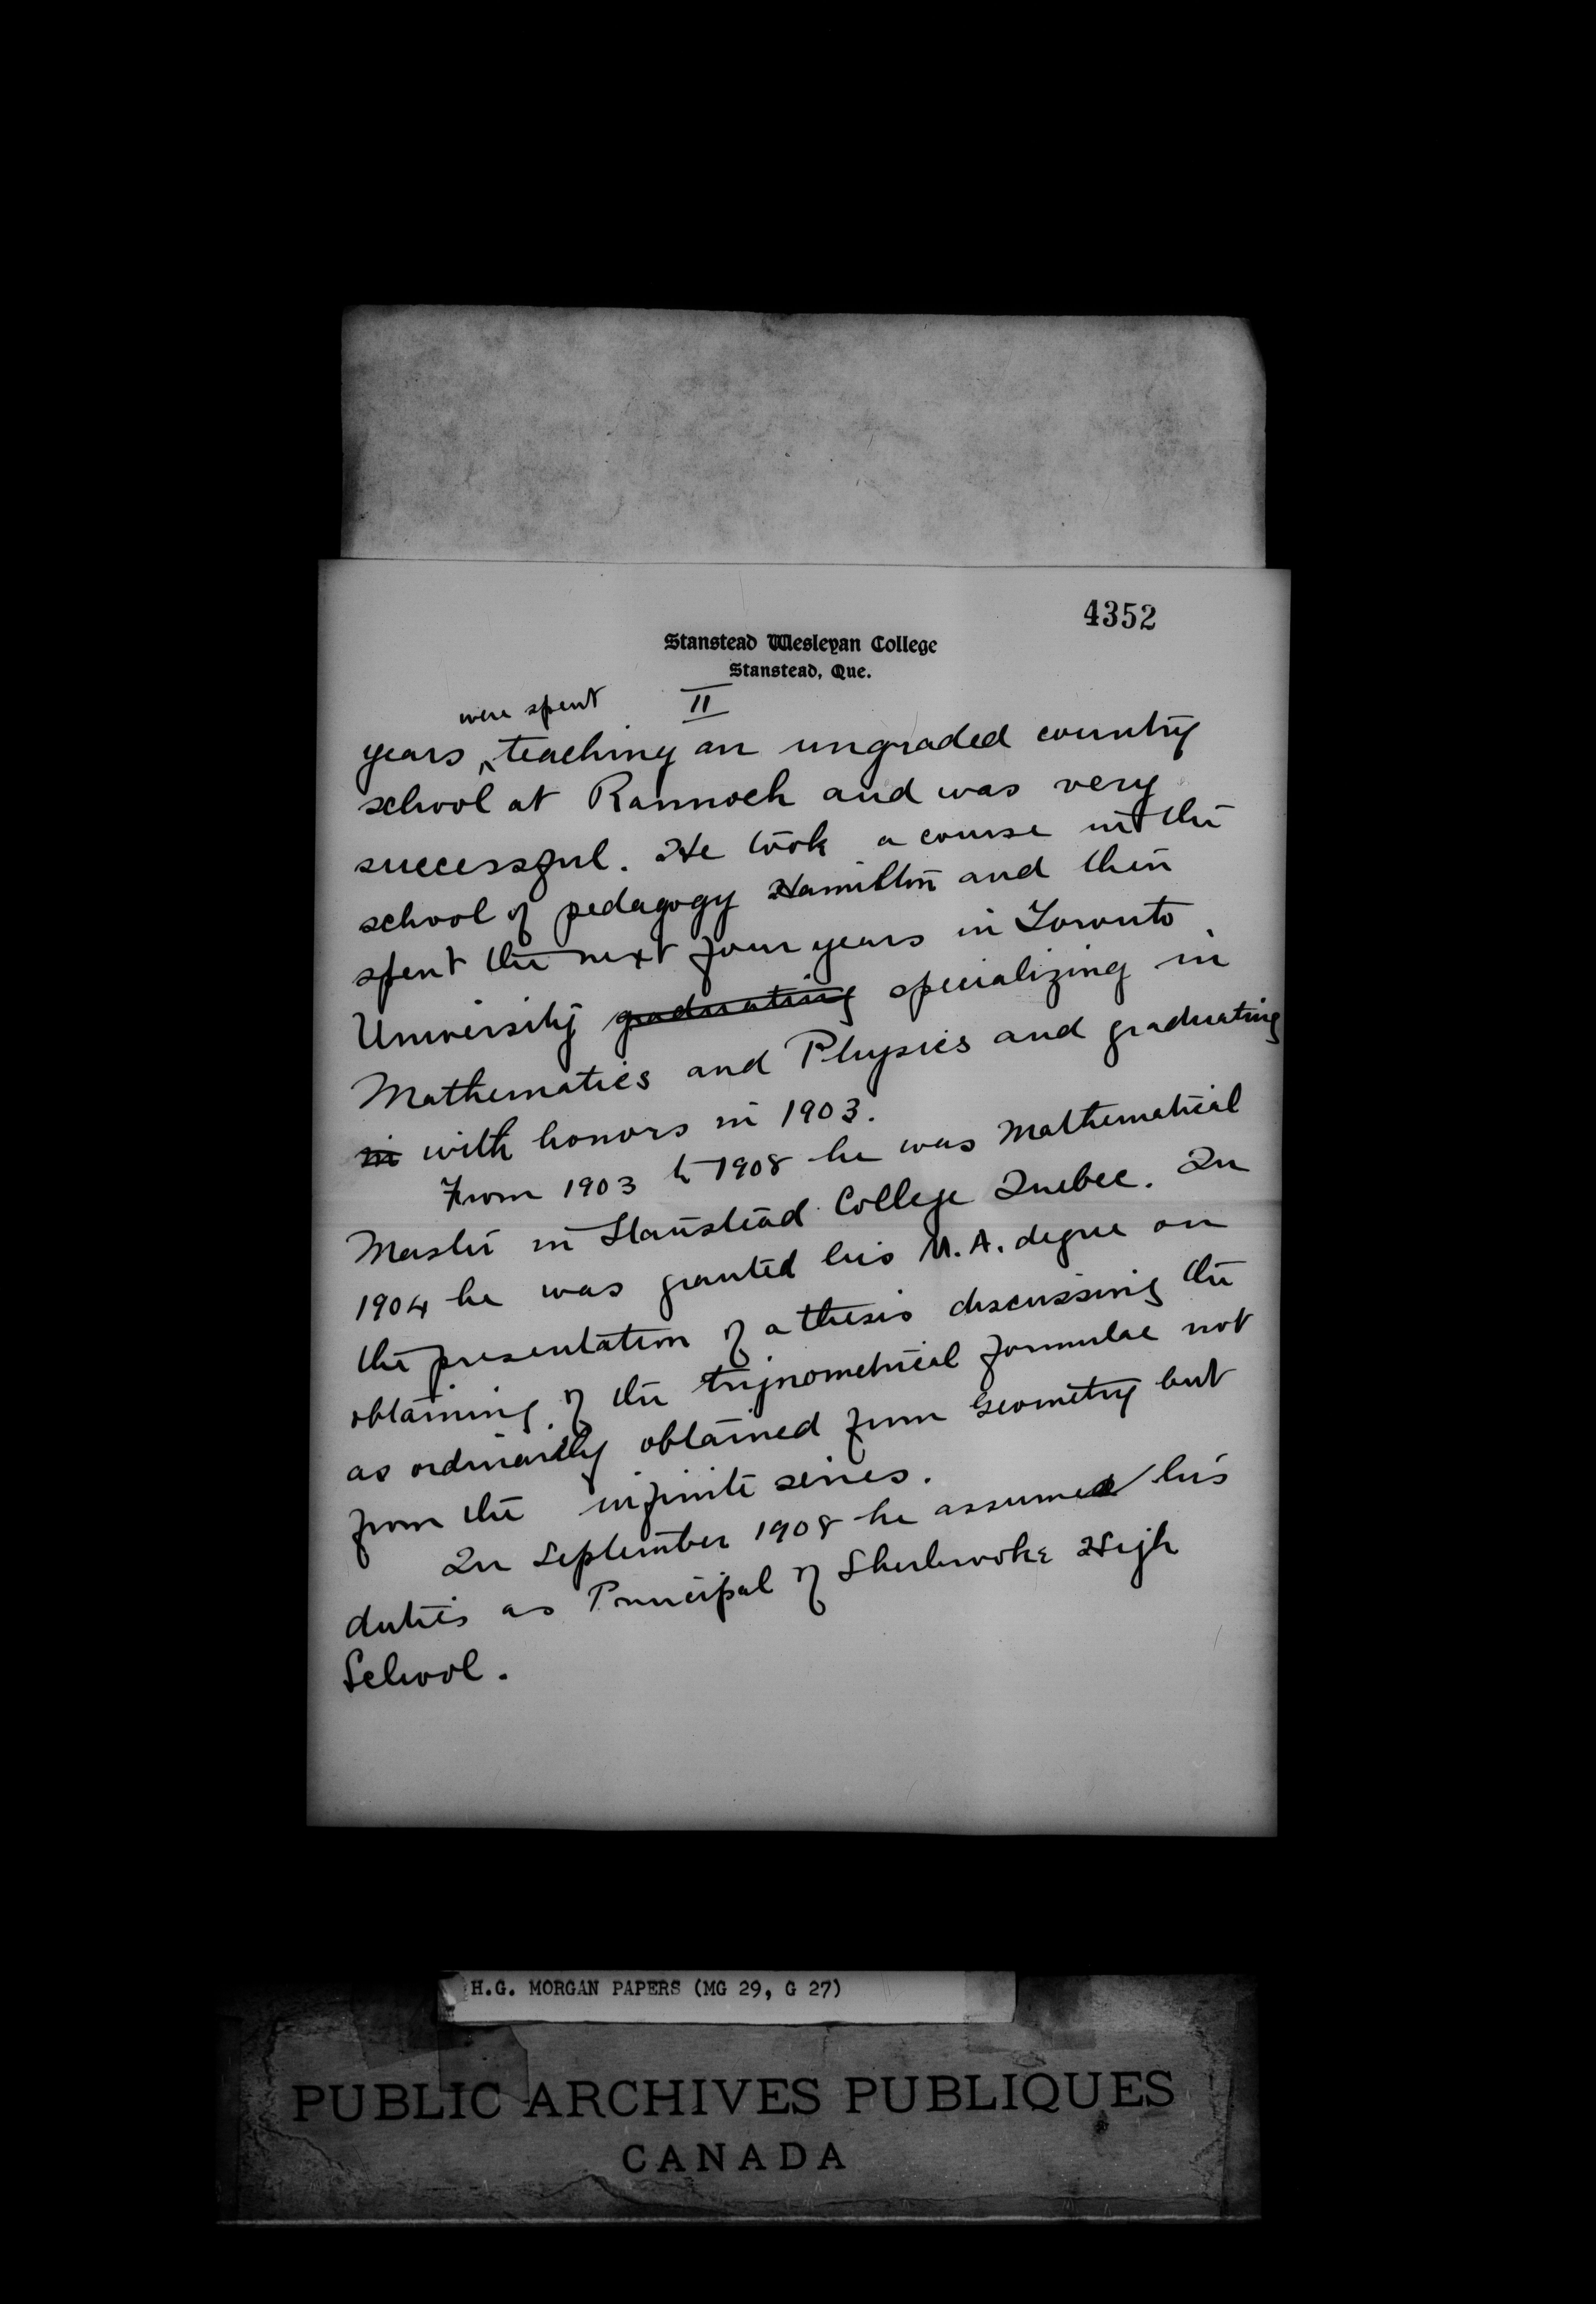 4352
Stanstead Wesleyan College
Stanstead, Que.
II
were spent
years ^ teaching an ungraded country
school at Rannoch and was very
successful. He took a course in the
school of pedagogy Hamilton and then
spent the next four years in Toronto
University graduating specializing in
Mathematics and Physics and graduating
in with honors in 1903.
From 1903 to 1908 he was Mathematical
Master in Stanstead College Quebec. In
1904 he was granted his M.A. degree on
the presentation of a thesis discussing the
obtaining of the trignometrical formulae not
as ordinarily obtained from Geometry but
from the infinite series.
In September 1908 he assumed his
duties as Principal of Sherbrooke High
School.
H.G. MORGAN PAPERS (MG 29, G 27)
PUBLIC ARCHIVES PUBLIQUES
CANADA